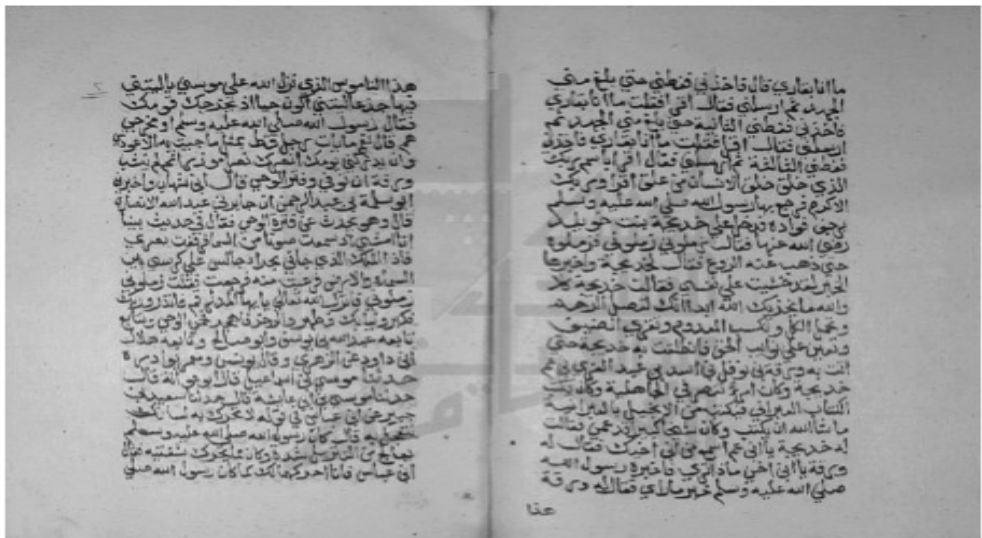 ما انا بقاري قال فاخذني فغطني حتي بلغ مني
الجهد ثم ارسلني فقال اقرا فقلت ما انا بقاري
فاخذني فغطني الثانية حتي بلغ مني الجهد ثم
ارسلني فقال اقرا فقلت ما انا بقاري فاخذني
فغطني الثالثة ثم ارسلني فقال اقرا باسم ربك
الذي خلق خلق الانسان من علق اقرا وربك
الاكرم فرجع بها رسول الله صلي الله عليه وسلم
يرجف فواده فدخل علي خديجة بنت خويلد
رضي الله عنها فقال زملوني زملوني فزملوه
حتي ذهب عنه الروع فقال لخديجة واخبرها
الخبر لقد خشيت علي نفسي فقالت خديجة كلا
والله ما يخزيك الله ابدا انك لتصل الرحم
وتحمل الكل وتكسب المعدوم وتقري الضيف
وتعين علي نوايب الحق فانطلقت به خديجة حتي
اتت به ورقة بن نوفل بن اسد بن عبد العزي بن عم
خديجة وكان امرا تنصر في الجاهلية وكان يكتب
الكتاب العبراني فيكتب من الانجيل بالعبرانية
ما شا الله ان يكتب وكان شيخا كبيرا قد عمي فقالت
له خديجة يا ابن عم اسمع من ابن اخيك فقال له
ورقة يا ابن اخي ماذا تري فاخبره رسول الله
صلي الله عليه وسلم خبر ما راي فقال له ورقة
هذا
هذا الناموس الذي نزل الله علي موسي يا ليتني
فيها جذعا ليتني اكون حيا اذ يخرجك قومك
فقال رسول الله صلي الله عليه وسلم او مخرجي
هم قال نعم لم يات رجل قط بمثل ما جيت به الا عودي
وان يدركني يومك انصرك نصرا موزرا ثم لم ينشب
ورقة ان توفي وفتر الوحي قال ابن شهاب واخبرني
ابو سلمة بن عبد الرحمن ان جابر بن عبد الله الانصاري
قال وهو يحدث عن فترة الوحي فقال في حديثه بينا
انا امشي اذ سمعت صوتا من السما فرفعت بصري
فاذا الملك الذي جاني بحرا جالس علي كرسي بين
السما والارض فرعبت منه فرجعت فقلت زملوني
زملوني فانزل الله تعالي يا يها المدثر قم فانذر وربك
فكبر وثيابك فطهر والرجز فاهجر فحمي الوحي وتتابع
تابعه عبد الله بن يوسف وابو صالح وتابعه هلال
بن داود عن الزهري وقال يونس ومعمر بوادره
حدثنا موسي بن اسماعيل قال ابو عوانة قال
حدثنا موسي بن ابي عايشة قال حدثنا سعيد بن
جبير عن ابن عباس في قوله لا تحرك به لسانك
لتعجل به قال كان رسول الله صلي الله عليه وسلم
يعالج من التنزيل شدة وكان مما يحرك شفتيه فقال
ابن عباس فانا احركهما لك كما كان رسول الله صلي